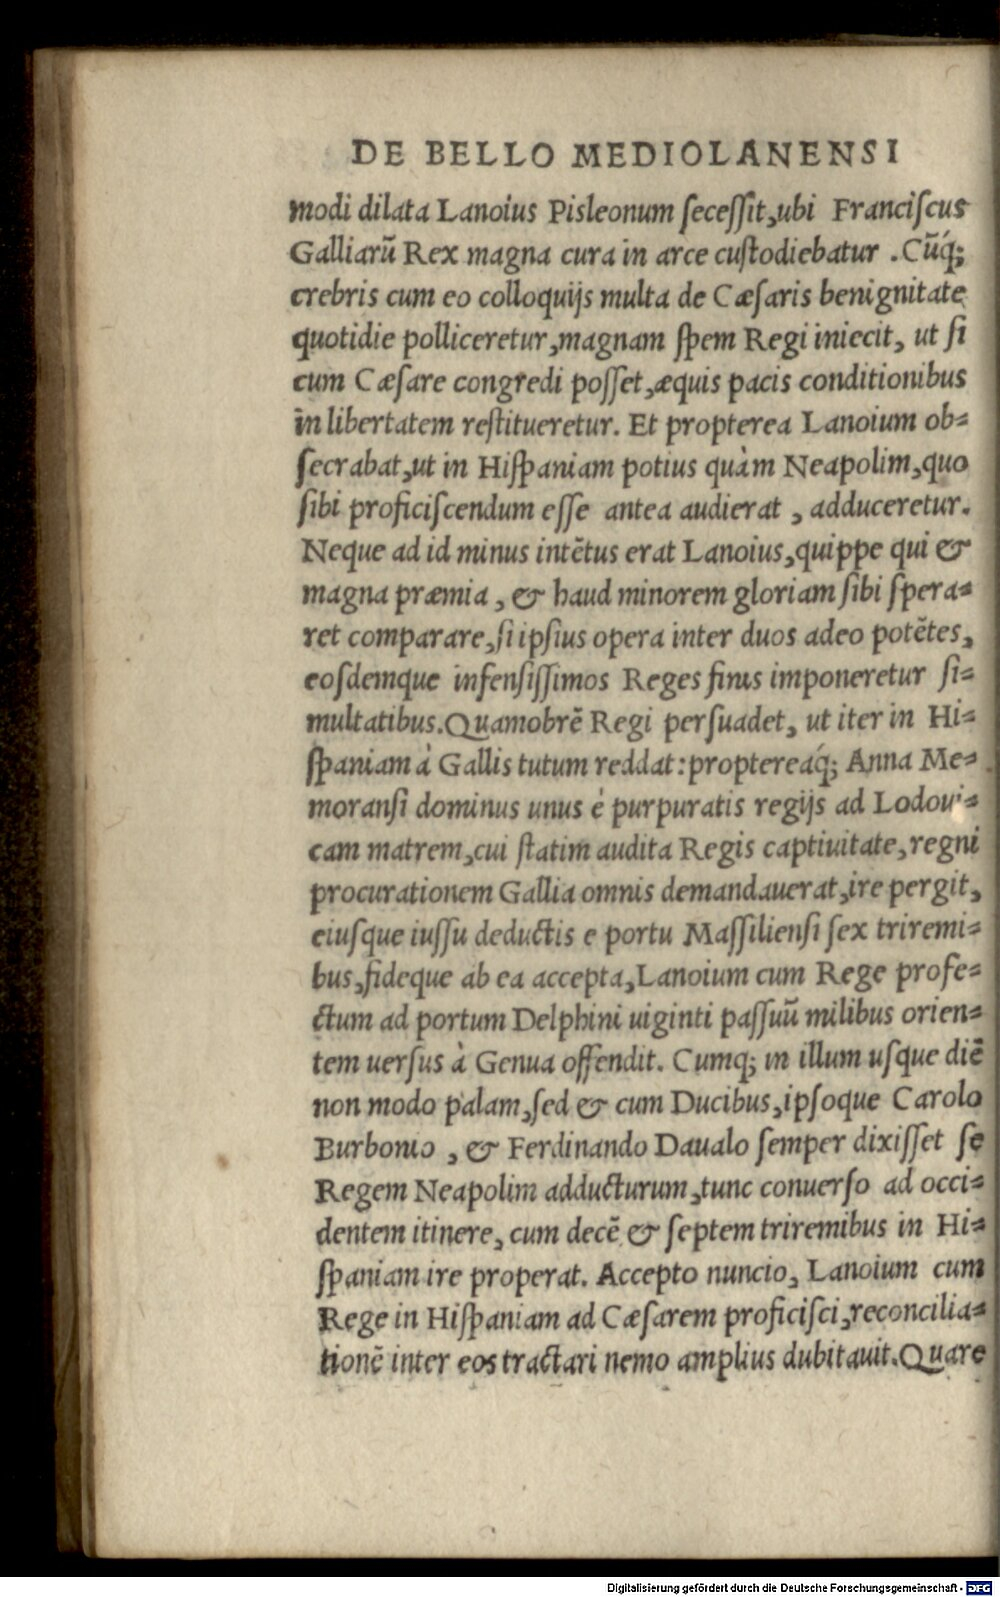 DE BELLO MEDIOLANENSI
modi dilata Lanoius Pisleonum ſeceſſit, ubi Franciſcus
Galliarũ Rex magna cura in arce cuſtodiebatur . Cũq́;
crebris cum eo colloquijs multa de Cæſaris benignitate
quotidie polliceretur, magnam ſpem Regi iniecit, ut ſi
cum Cæſare congredi poſſet, æquis pacis conditionibus
in libertatem reſtitueretur. Et propterea Lanoium ob=
ſecrabat, ut in Hiſpaniam potius quàm Neapolim, quo
ſibi proficiſcendum eſſe antea audierat , adduceretur.
Neque ad id minus intẽtus erat Lanoius, quippe qui &
magna præmia , & haud minorem gloriam ſibi ſpera=
ret comparare, ſi ipſius opera inter duos adeo potẽtes,
eoſdemque infenſiſſimos Reges finis imponeretur ſi=
multatibus. Quamobrẽ Regi perſuadet, ut iter in Hi=
ſpaniam à Gallis tutum reddat: proptereaq́; Anna Me=
moranſi dominus unus è purpuratis regijs ad Lodoui=
cam matrem, cui ſtatim audita Regis captiuitate, regni
procurationem Gallia omnis demandauerat, ire pergit,
eiuſque iuſſu deductis e portu Maſſilienſi ſex triremi=
bus, fideque ab ea accepta, Lanoium cum Rege profe=
ctum ad portum Delphini uiginti paſſuũ milibus orien=
tem uerſus à Genua offendit. Cumq; in illum uſque diẽ
non modo palam, ſed & cum Ducibus, ipſoque Carolo
Burbonio , & Ferdinando Daualo ſemper dixiſſet ſe
Regem Neapolim adducturum, tunc conuerſo ad occi=
dentem itinere, cum decẽ & ſeptem triremibus in Hi=
ſpaniam ire properat. Accepto nuncio, Lanoium cum
Rege in Hiſpaniam ad Cæſarem proficiſci, reconcilia=
tionẽ inter eos tractari nemo amplius dubitauit. Quare
Digitalisierung gefördert durch die Deutsche Forschungsgemeinschaft - DFG